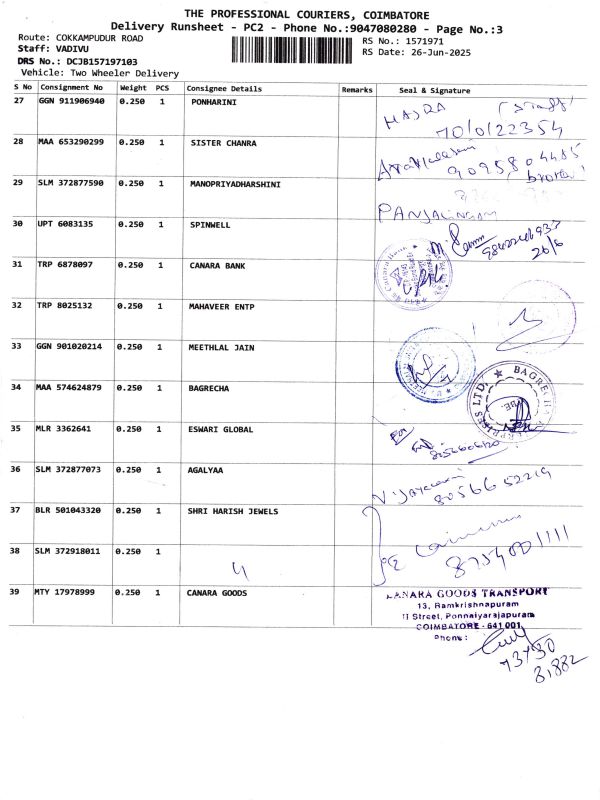 THE PROFESSIONAL COURIERS, COIMBATORE
Delivery Runsheet - PC2 - Phone No.:9047080280 - Page No.:3
Route: COKKAMPUDUR ROAD
RS No.: 1571971
Staff: VADIVU
RS Date: 26-Jun-2025
DRS No.: DCJB157197103
Vehicle: Two Wheeler Delivery
S No Consignment No Weight PCS Consignee Details Remarks Seal & Signature
27 GGN 911906940 0.250 1 PONHARINI
HAJRA (Staff)
28 MAA 653290299 0.250 1 SISTER CHANRA
29 SLM 372877590 0.250 1 MANOPRIYADHARSHINI
PANJALINGAM
30 UPT 6083135 0.250 1 SPINWELL
26/6
31 TRP 6878097 0.250 1 CANARA BANK
Canara Bank
32 TRP 8025132 0.250 1 MAHAVEER ENTP
33 GGN 901020214 0.250 1 MEETHLAL JAIN
34 MAA 574624879 0.250 1 BAGRECHA
35 MLR 3362641 0.250 1 ESWARI GLOBAL
For
36 SLM 372877073 0.250 1 AGALYAA
80566 52219
37 BLR 501043320 0.250 1 SHRI HARISH JEWELS
38 SLM 372918011 0.250 1 4
39 MTY 17978999 0.250 1 CANARA GOODS
CANARA GOODS TRANSPORT
13, Ramkrishnapuram
II Street, Ponnaiyarajapuram
COIMBATORE - 641 001.
Phone:
73730
81882